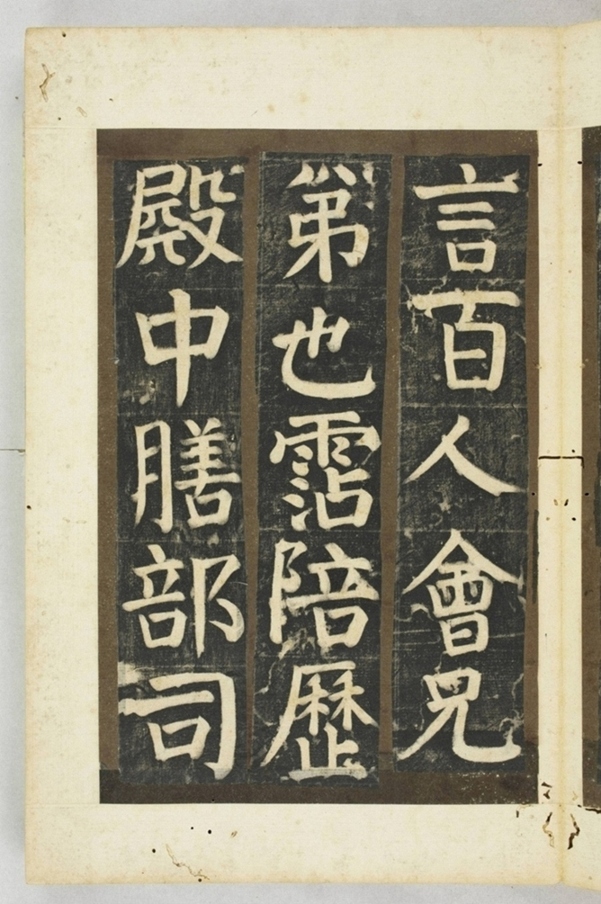 言百人會兄
弟也霑陪歷
殿中膳部司